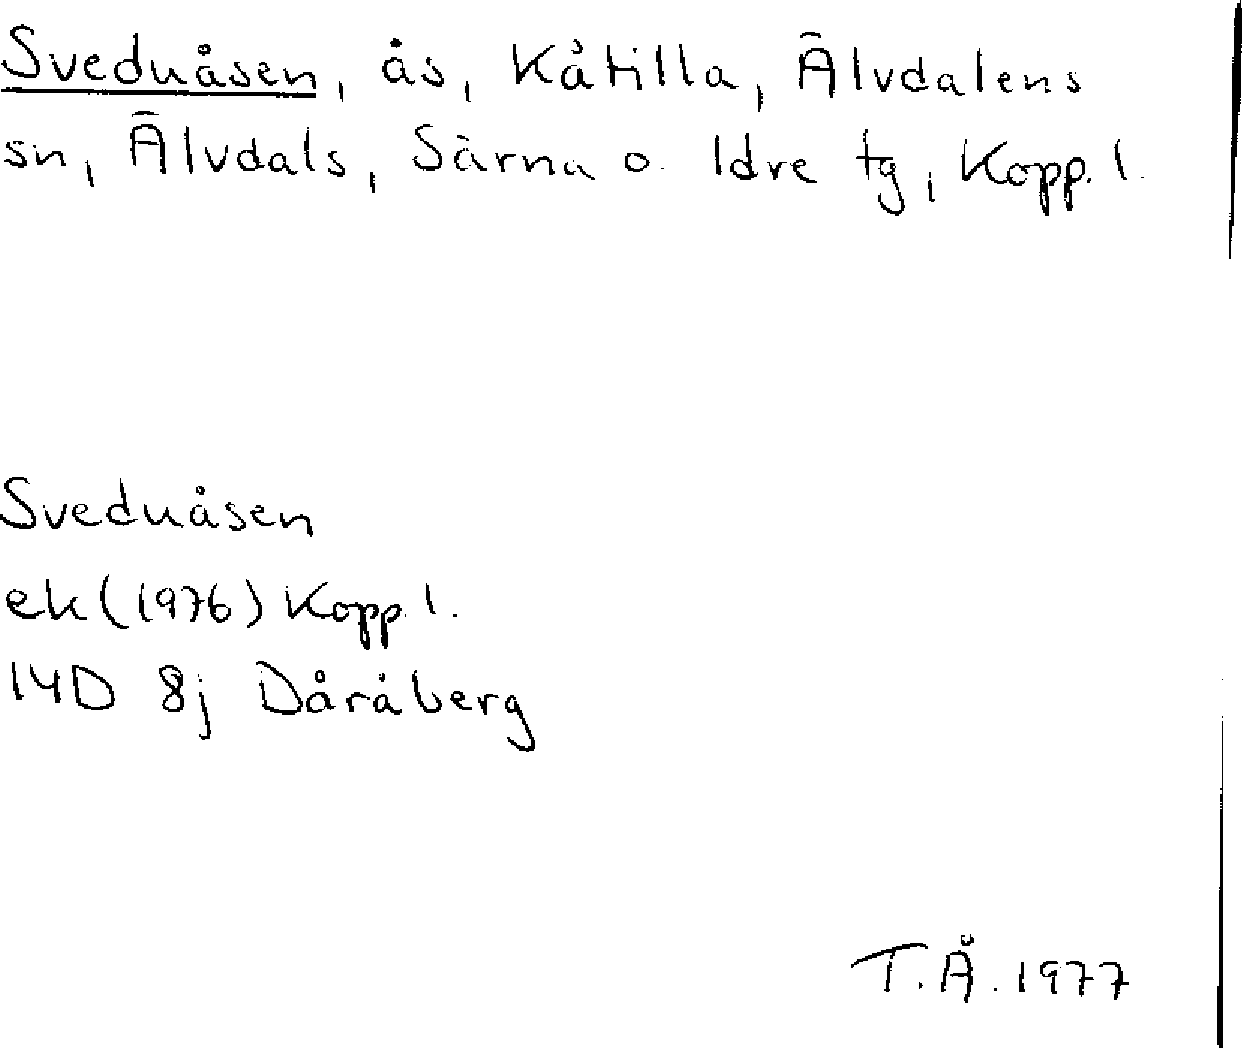 Sveduåsen, ås, Kåtilla, Älvdalens
sn, Älvdals, Särna o. Idre tg, Kopp. l.
Sveduåsen
ek (1976) Kopp. l.
14D 8j Dåråberg
T. Å. 1977